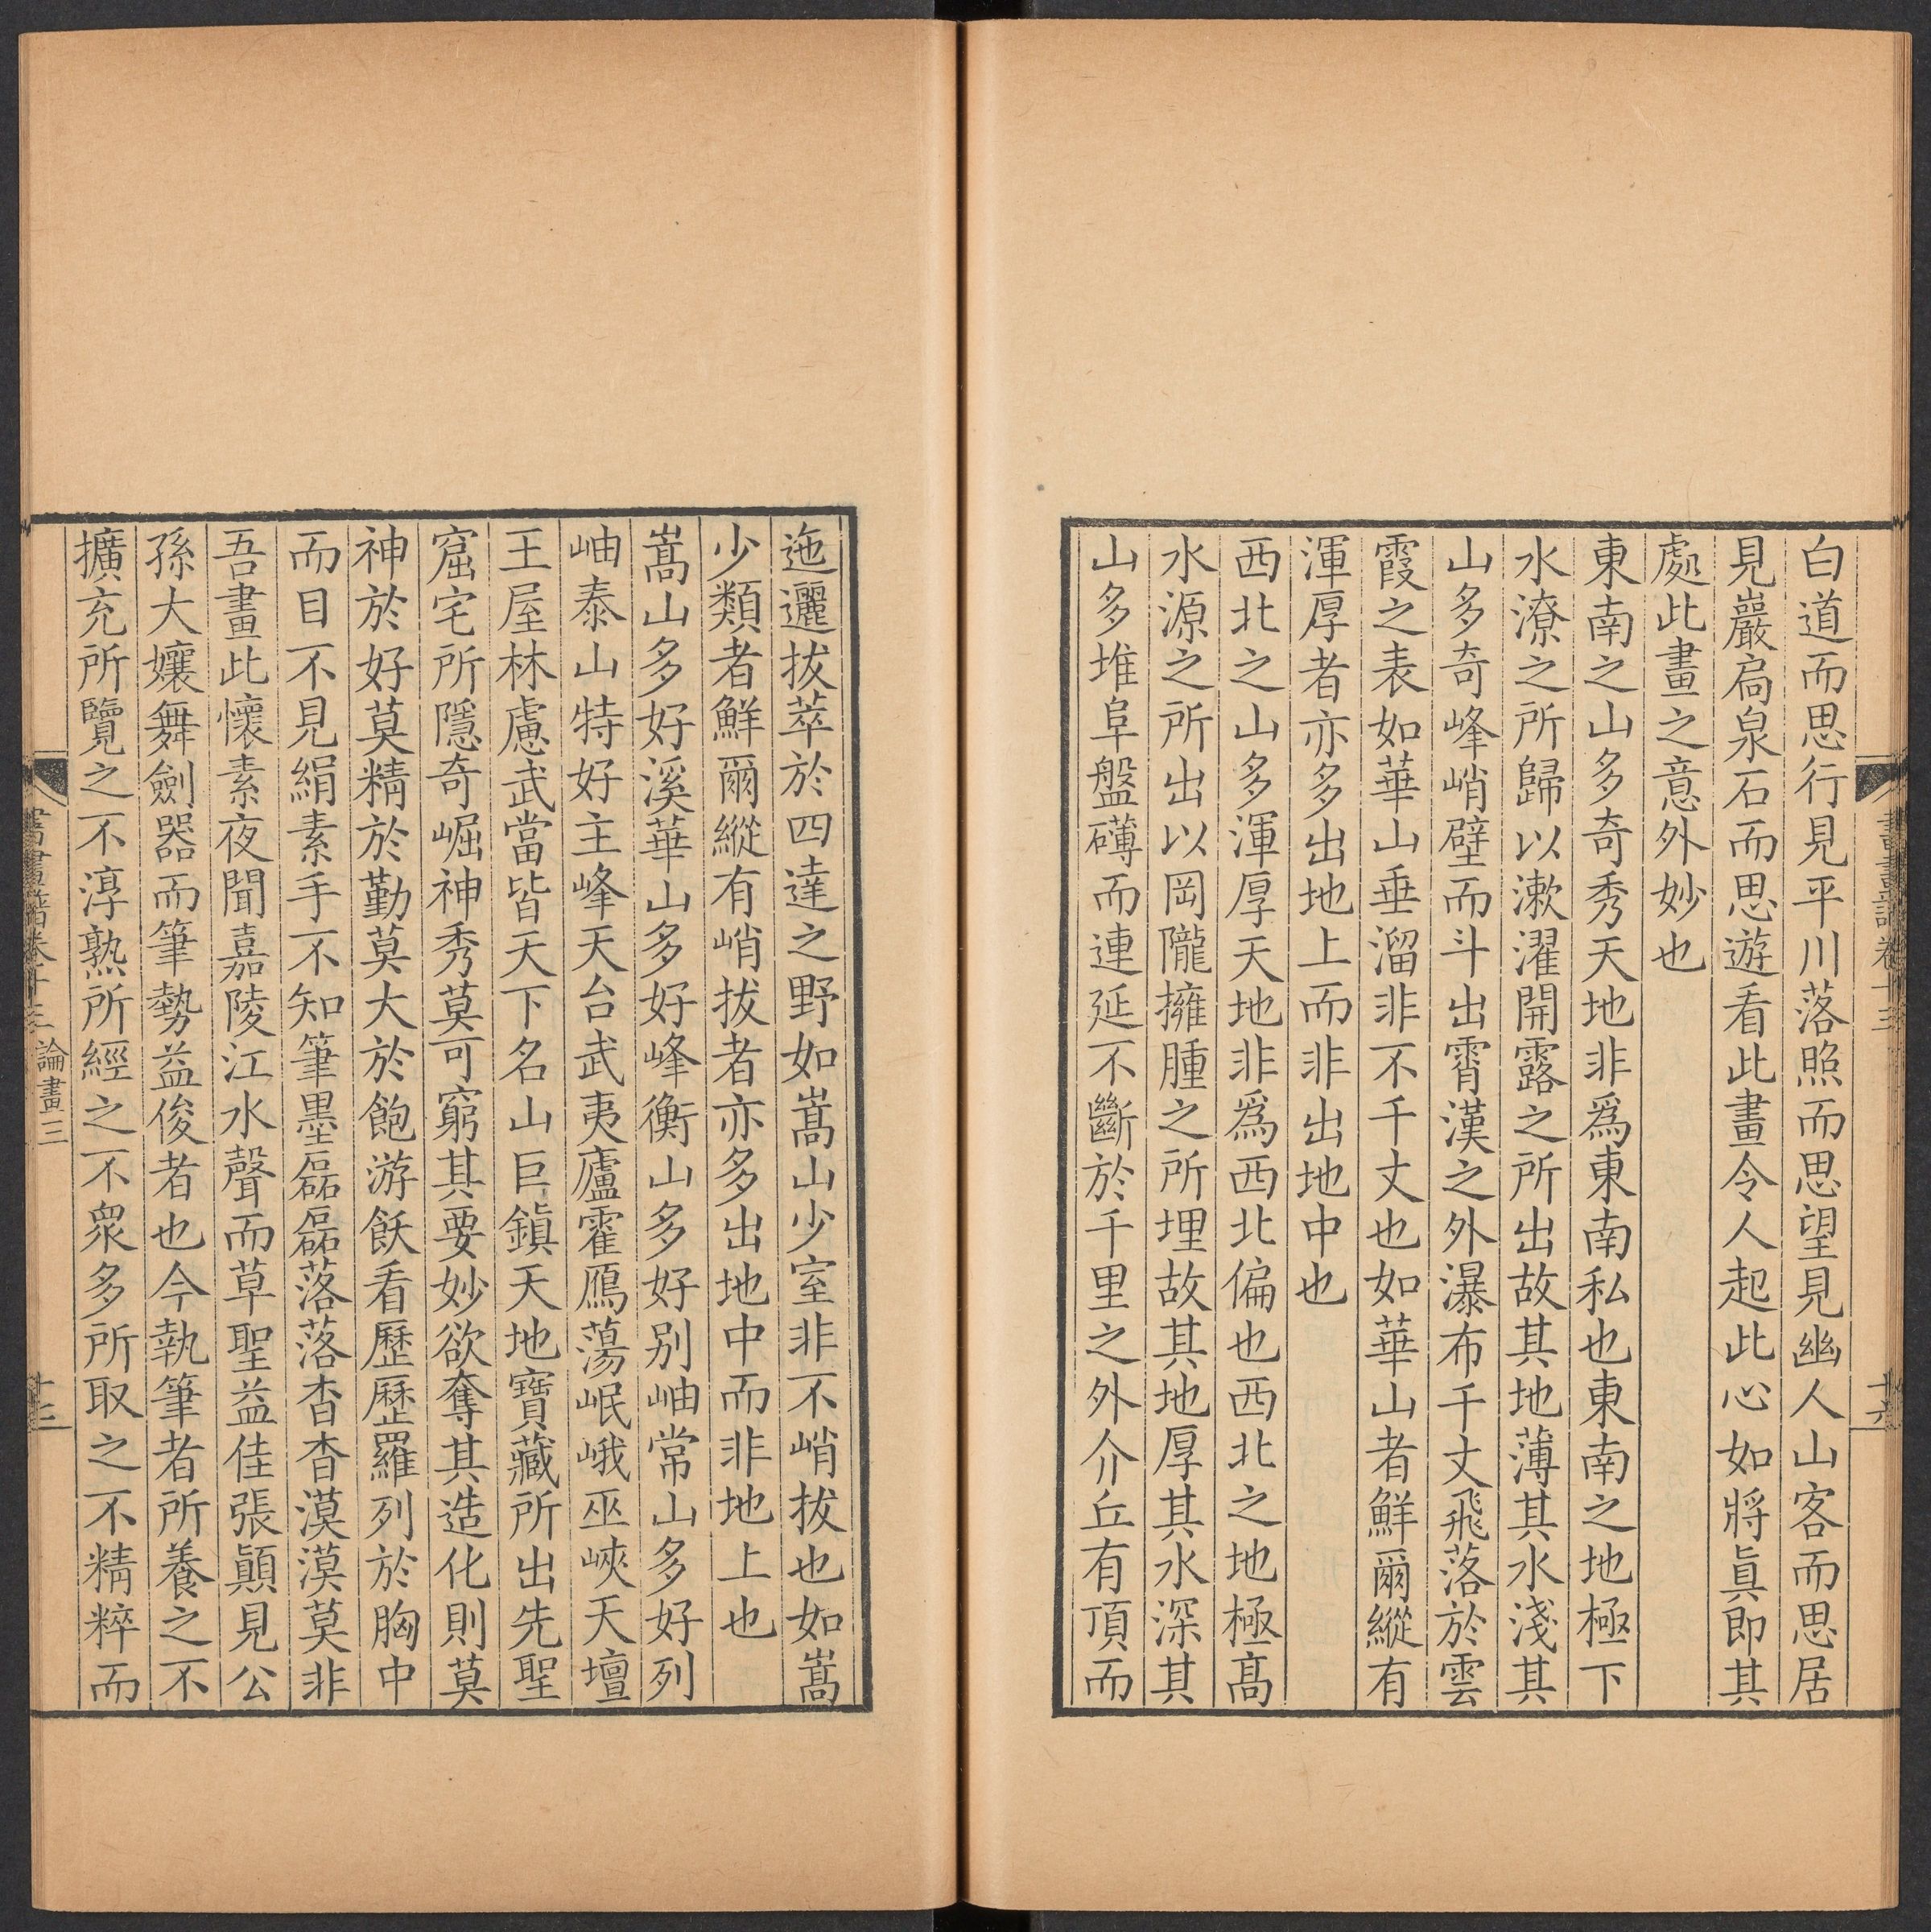 書畫譜卷十三
白道而思行見平川落照而思望見幽人山客而思居
見巖扃泉石而思遊看此畫令人起此心如將眞即其
處此畫之意外妙也
東南之山多奇秀天地非爲東南私也東南之地極下
水潦之所歸以漱濯開露之所出故其地薄其水淺其
山多奇峰峭壁而斗出霄漢之外瀑布千丈飛落於雲
霞之表如華山垂溜非不千丈也如華山者鮮爾縱有
渾厚者亦多出地上而非出地中也
西北之山多渾厚天地非爲西北偏也西北之地極髙
水源之所出以岡隴擁腫之所埋故其地厚其水深其
山多堆阜盤礴而連延不斷於千里之外介丘有頂而
迤邐拔萃於四逹之野如嵩山少室非不峭拔也如嵩
少類者鮮爾縱有峭拔者亦多出地中而非地上也
嵩山多好溪華山多好峰衡山多好别岫常山多好列
岫泰山特好主峰天台武夷廬霍鴈蕩岷峨巫峽天壇
王屋林慮武當皆天下名山巨鎭天地寶藏所出先聖
窟宅所隱奇崛神秀莫可窮其要妙欲奪其造化則莫
神於好莫精於勤莫大於飽游飫看歷歷羅列於胸中
而目不見絹素手不知筆墨磊磊落落杳杳漠漠莫非
吾畫此懷素夜聞嘉陵江水聲而草聖益佳張顚見公
孫大孃舞劍器而筆勢益俊者也今執筆者所養之不
擴充所覽之不淳熟所經之不衆多所取之不精粹而
書畫譜卷十三 論畫三 十三